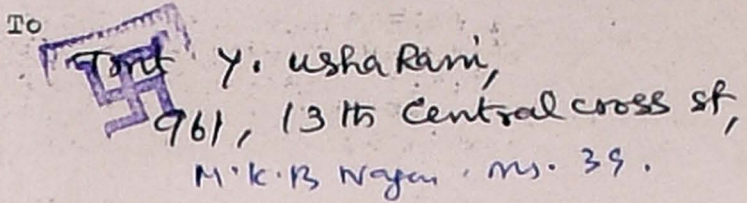 To
Tmt Y. Usha Rani,
961, 13th Central cross st,
M.K.B Nagar. Ms. 39.